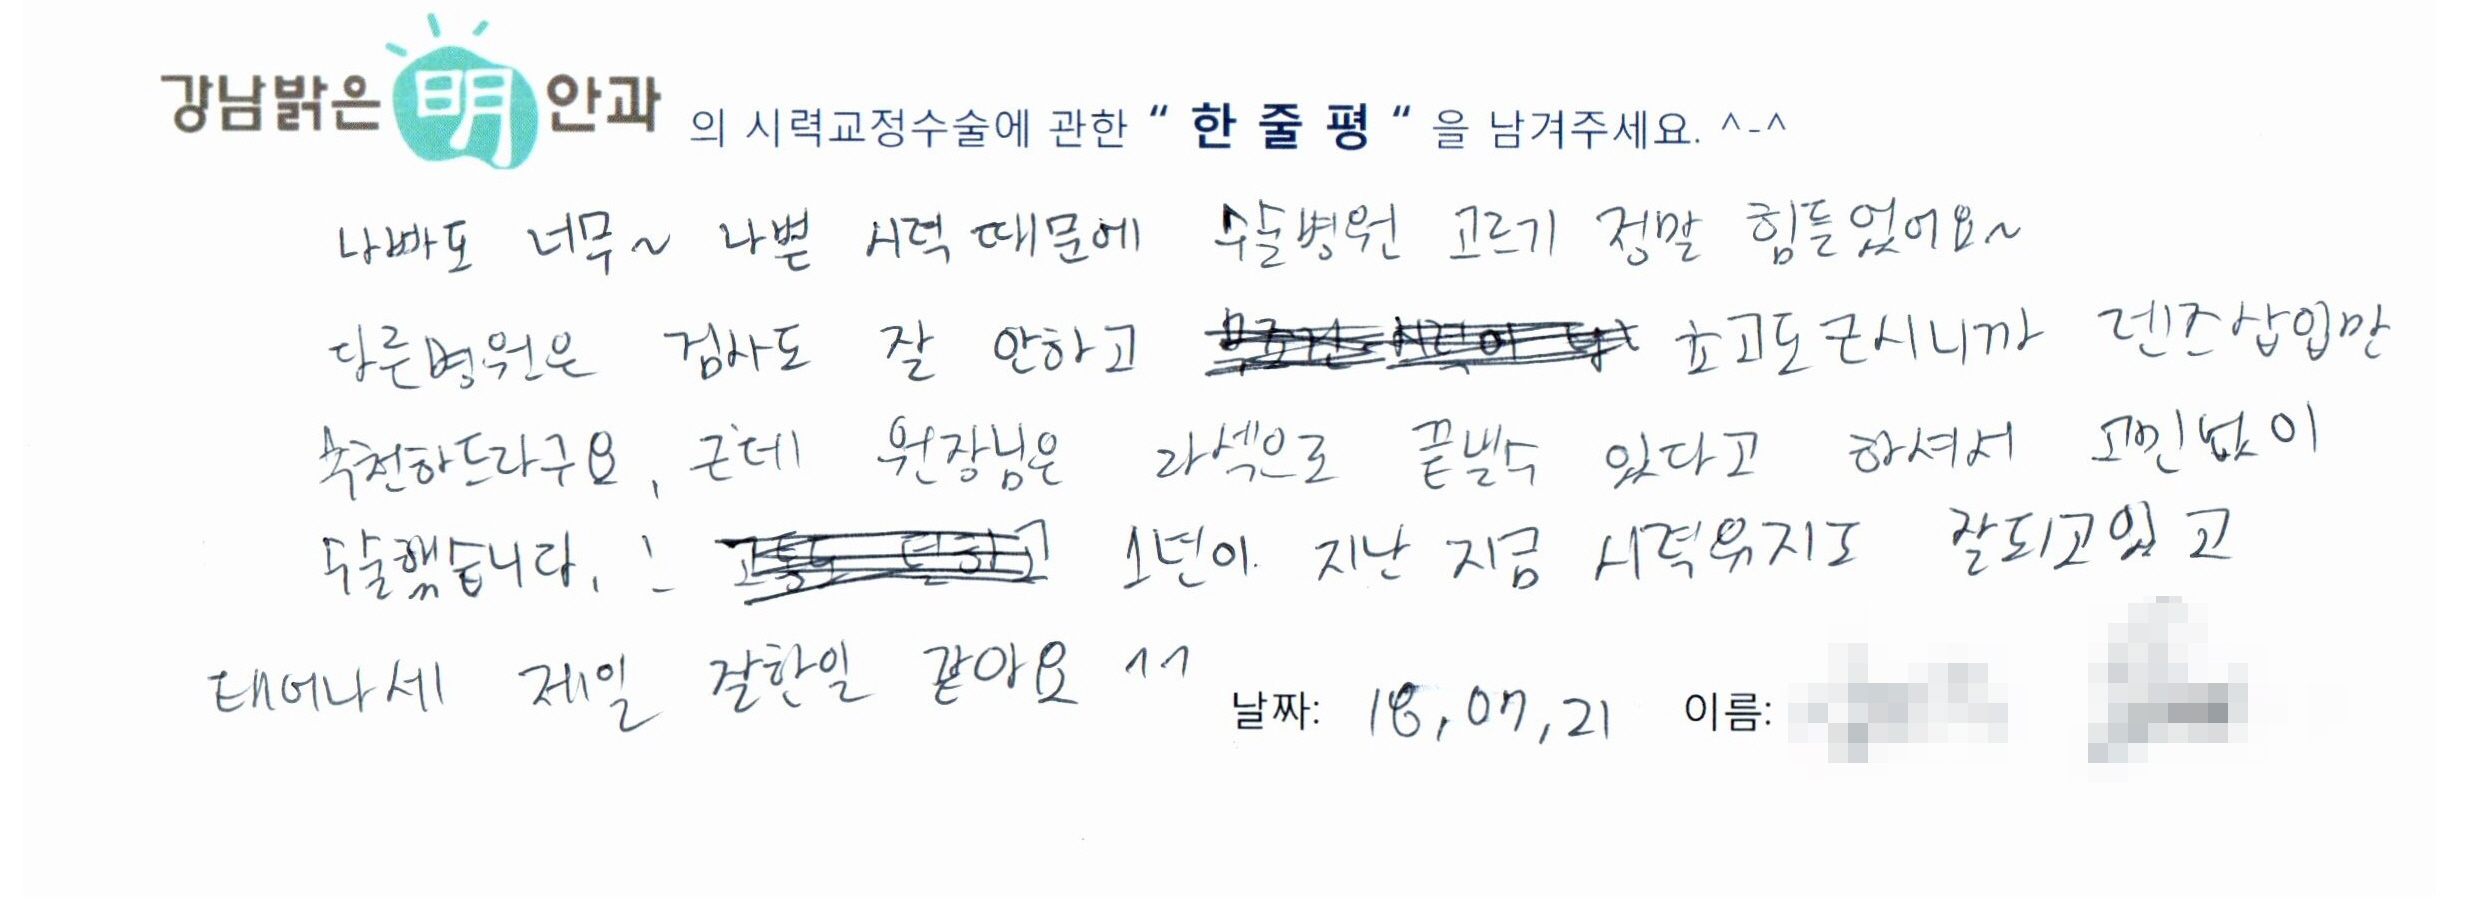 강남밝은明안과 의 시력교정수술에 관한 “ 한 줄 평 “ 을 남겨주세요. ^-^
나빠도 너무~ 나쁜 시력 때문에 수술병원 고르기 정말 힘들었어요~
다른병원은 검사도 잘 안하고 초고도근시니까 렌즈삽입만
추천하드라구요, 근데 원장님은 라섹으로 끝낼수 있다고 하셔서 고민없이
수술했습니다. 1년이 지난 지금 시력유지도 잘되고있고
태어나세 제일 잘한일 같아요 ^^
날짜: 18,07,21 이름: